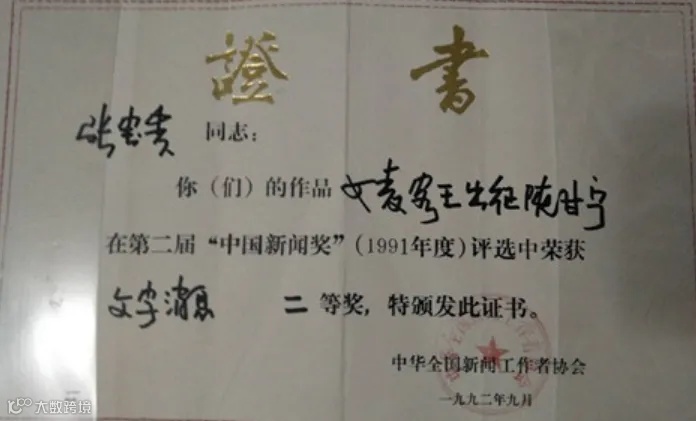 證 書
同志:
你（们）的作品 女麦客王出征陕甘宁
在第二届“中国新闻奖”(1991年度)评选中荣获
文字消息 二 等奖,特颁发此证书。
中华全国新闻工作者协会
一九九二年九月
大数跨境